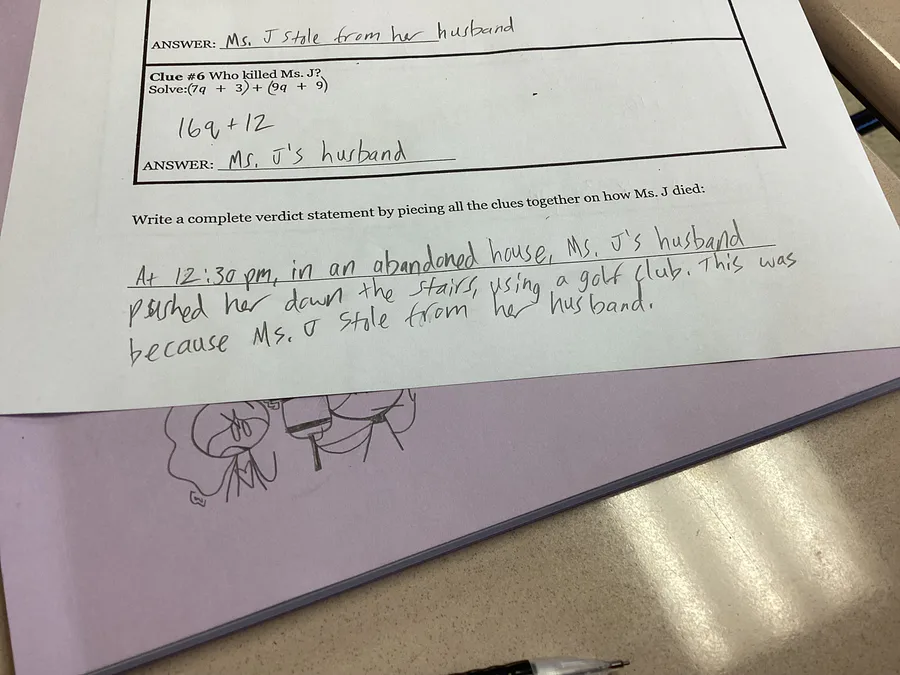 ANSWER: Ms. J stole from her husband
Clue #6 Who killed Ms. J?
Solve:(7q + 3) + (9q + 9)
16q + 12
ANSWER: Ms. J's husband
Write a complete verdict statement by piecing all the clues together on how Ms. J died:
At 12:30 pm, in an abandoned house, Ms. J's husband
pushed her down the stairs, using a golf club. This was
because Ms. J stole from her husband.